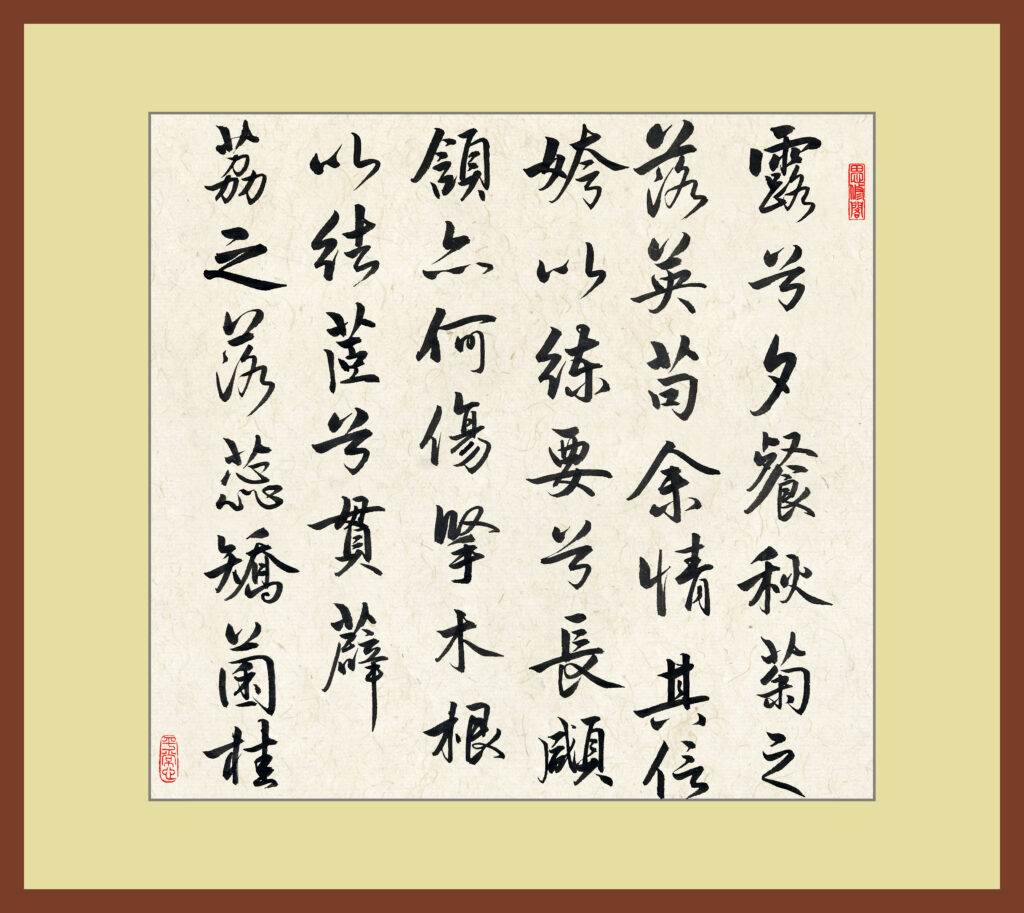 露兮夕餐秋菊之
落英苟余情其信
姱以練要兮長顑
頷亦何傷掔木根
以結茝兮貫薜
荔之落蕊矯菌桂
平常心